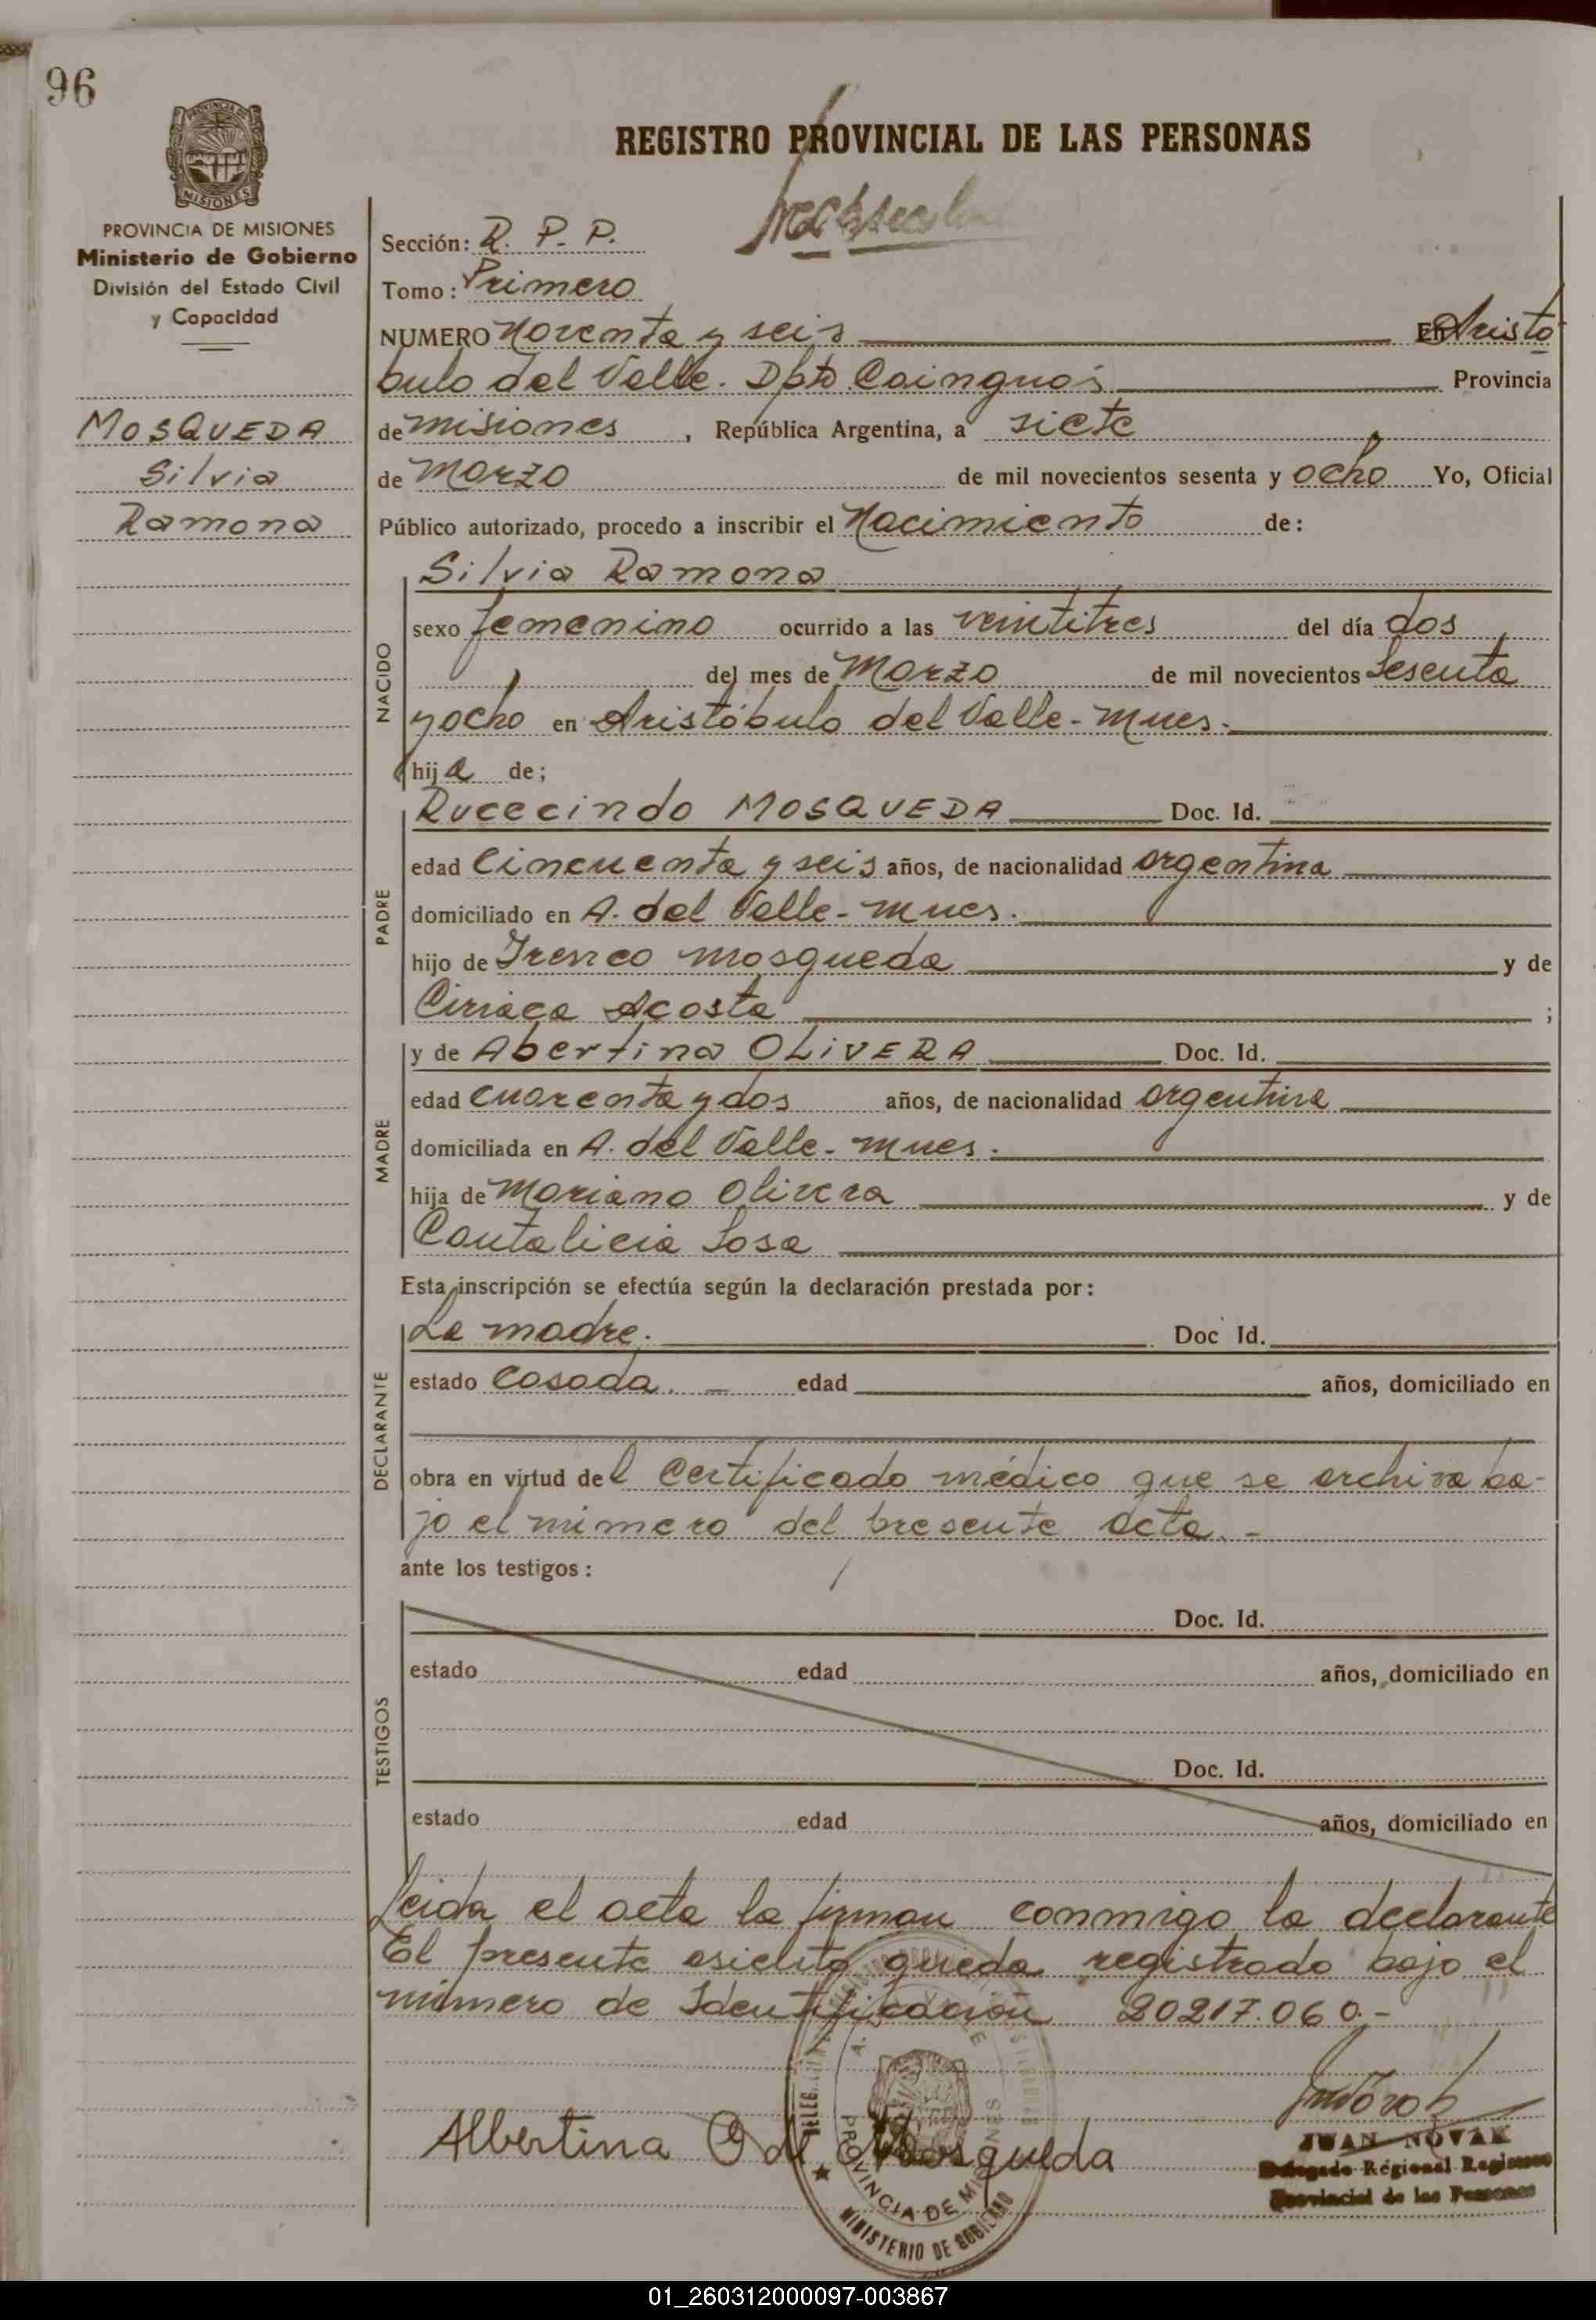 96
PROVINCIA DE MISIONES
Ministerio de Gobierno
División del Estado Civil
y Capacidad
MOSQUEDA
Silvia
Ramona
REGISTRO PROVINCIAL DE LAS PERSONAS
Sección: R. P. P.
Tomo: Primero
NUMERO Noventa y seis En Aristó
bulo del Valle. Dpto Cainguás Provincia
de Misiones, República Argentina, a siete
de Marzo de mil novecientos sesenta y ocho Yo, Oficial
Público autorizado, procedo a inscribir el Nacimiento de:
NACIDO
Silvia Ramona
sexo femenino ocurrido a las veintitres del día dos
del mes de Marzo de mil novecientos Sesenta
y ocho en Aristóbulo del Valle - Mnes.
hija de;
PADRE
Rucecindo MOSQUEDA Doc. Id.
edad Cincuenta y seis años, de nacionalidad argentina
domiciliado en A. del Valle - Mnes.
hijo de Ireneo Mosqueda y de
Ciriaca Acosta ;
MADRE
y de Abertina OLiVERA Doc. Id.
edad cuarenta y dos años, de nacionalidad argentina
domiciliada en A. del Valle - Mnes.
hija de Mariano Olivera y de
Cantalicia Sosa
Esta inscripción se efectúa según la declaración prestada por:
DECLARANTE
La madre. Doc Id.
estado Casada. - edad años, domiciliado en
obra en virtud del Certificado médico que se archiva ba-
jo el número del presente acta. -
ante los testigos:
TESTIGOS
Doc. Id.
estado edad años, domiciliado en
Doc. Id.
estado edad años, domiciliado en
Leida el acta la firman conmigo la declarante
El presente asiento queda registrado bajo el
número de Identificación 20217.060.-
Albertina O de Mosqueda
JUAN NOVAK
Delegado Regional Registro
Provincial de las Personas
PROVINCIA DE MISIONES
MINISTERIO DE GOBIERNO
01_260312000097-003867